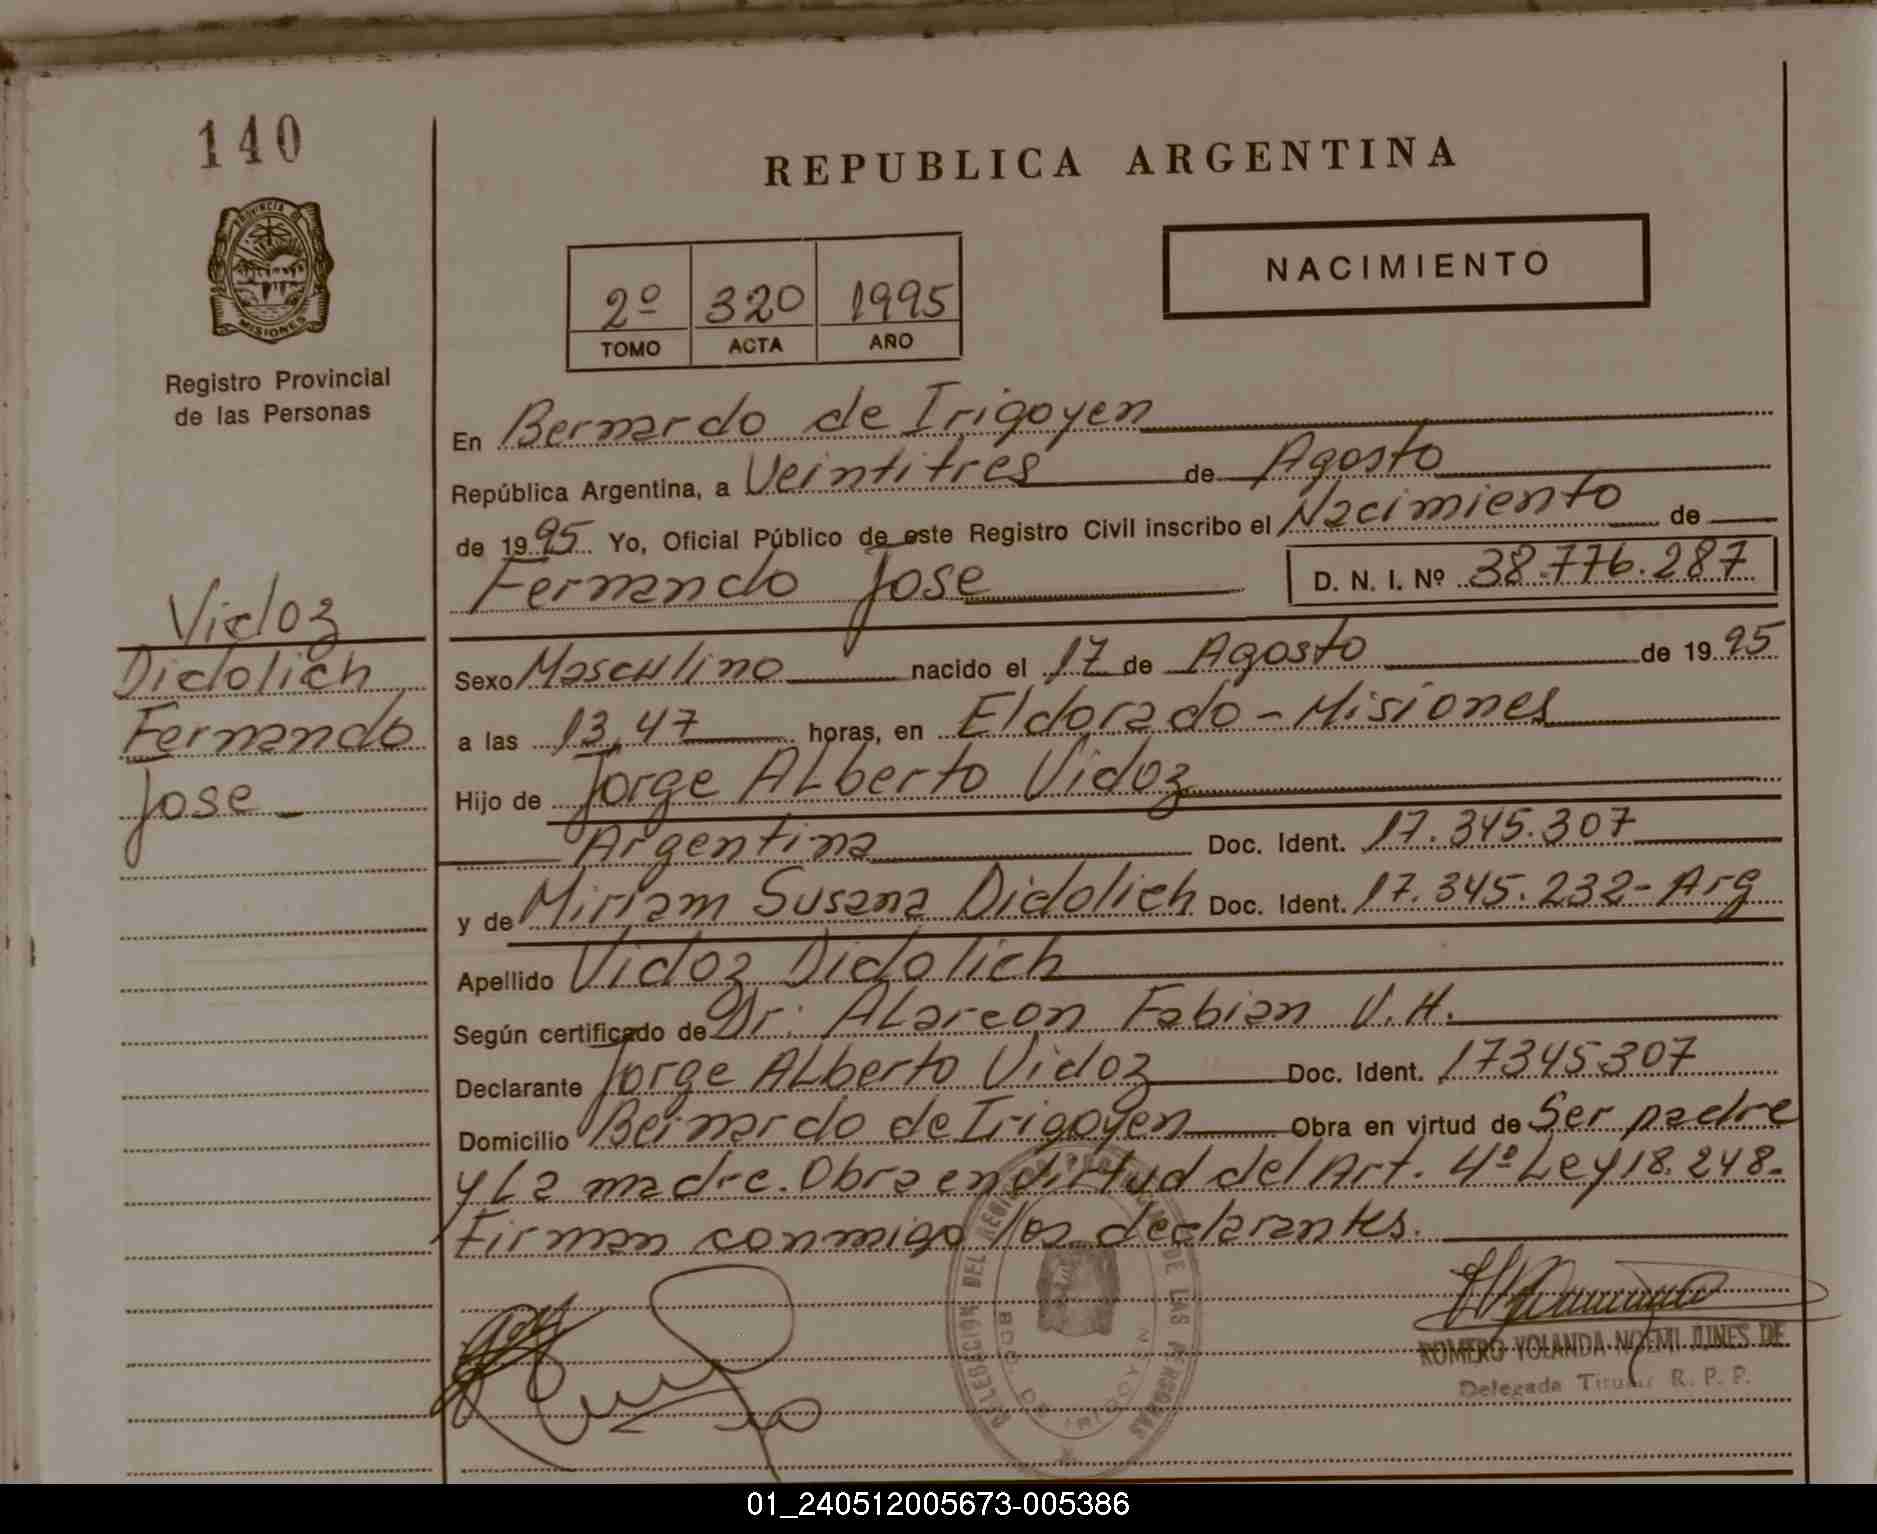 140
REPUBLICA ARGENTINA
PROVINCIA DE
MISIONES
Registro Provincial
de las Personas
NACIMIENTO
2º 320 1995
TOMO ACTA AÑO
En Bernardo de Irigoyen
República Argentina, a Veintitres de Agosto
de 1995 Yo, Oficial Público de este Registro Civil inscribo el Nacimiento de
Fernando Jose D. N. I. Nº 38.776.287
Vidoz
Didolich
Fernando
Jose
Sexo Masculino nacido el 17 de Agosto de 1995
a las 13,47 horas, en Eldorado - Misiones
Hijo de Jorge ALberto Vidoz
Argentina Doc. Ident. 17.345.307
y de Miriam Susana Didolich Doc. Ident. 17.345.232- Arg
Apellido Vidoz Didolich
Según certificado de Dr: ALarcon Fabian V.H.
Declarante Jorge ALberto Vidoz Doc. Ident. 17345307
Domicilio Bernardo de Irigoyen Obra en virtud de Ser padre
y La madre. Obra en virtud del Art. 4º Ley 18.248.
Firman conmigo los declarantes.
DELEGACION DEL REGISTRO PROVINCIAL DE LAS PERSONAS
BDO. DE IRIGOYEN
ROMERO YOLANDA NOEMI DE
Delegada Titular R. P. P.
01_240512005673-005386